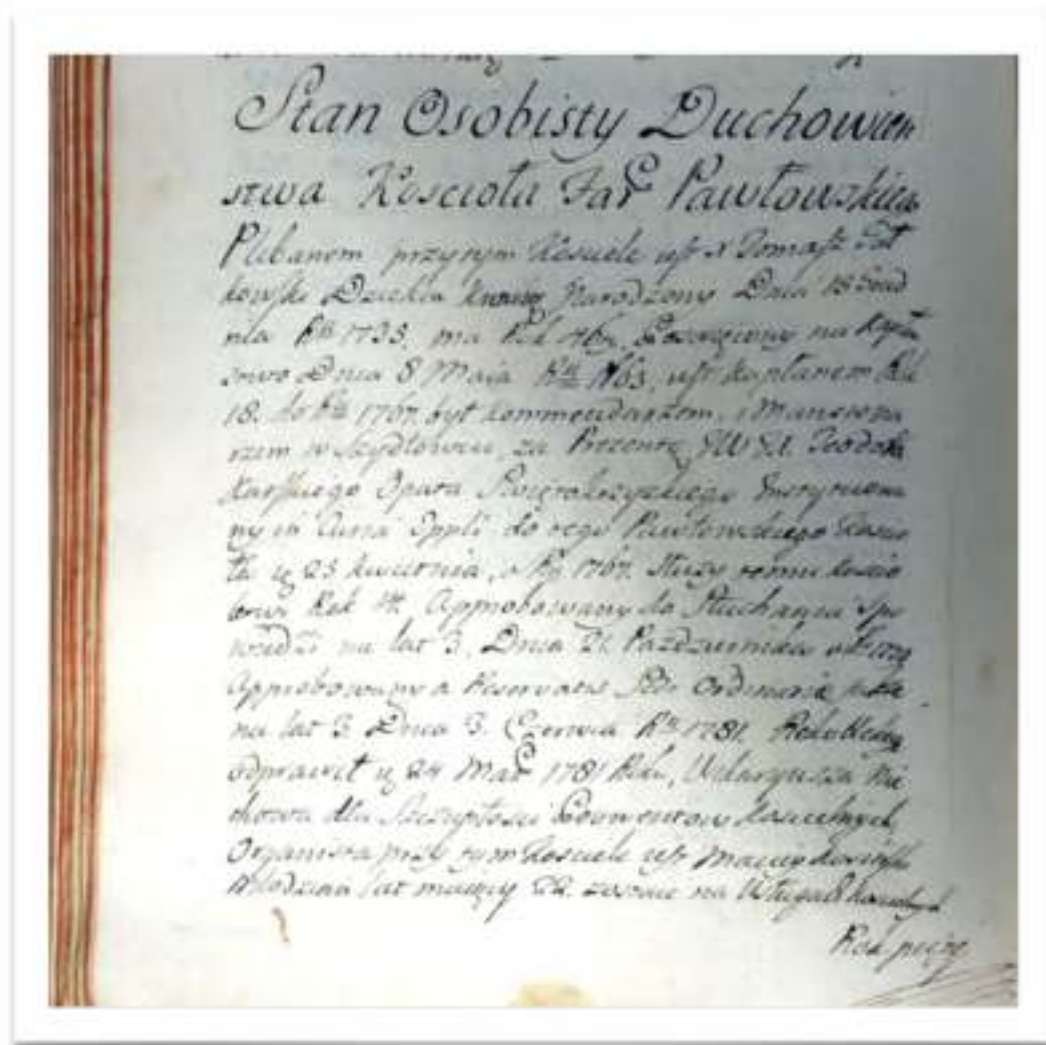 Stan Osobisty Duchowień
stwa Kościoła Far Pawłowskieo
Plebanem przytym Kościele jest X Tomasz
Dziekan Narodzony Dnia 18 Grud
nia Rku 1735. ma Rok Poświęcony na Kapłań
stwo Dnia 8 Maia Rku 1763, jest Kapłanem Rok
18. do Rku 1767. był Kommendarzem, i Mansiona
rzem w Szydłowcu, za Prezentą JW JX. Teodora
Opata Świętokrzyskiego Instytuowa
ny in Curia do tego Pawłowskiego Koscio
ła 23 kwietnia, Rku 1767. służy temu koscio
łowi Rok 14. Approbowany do Słuchania Spo
wiedzi na lat 3. Dnia 21. Października
Approbowany a Reservatis Ordinario
na lat 3. Dnia 3. Czerwca Rku 1781. Rekollekcye
odprawił 24 Mar 1781 Roku, Wikaryusza nie
chowa dla Szczupłości Prowentow Koscielnych
Organista przy tym Kosciele jest Maciey
Młodzian lat maiący 22. zostaie na Usługach
Rok